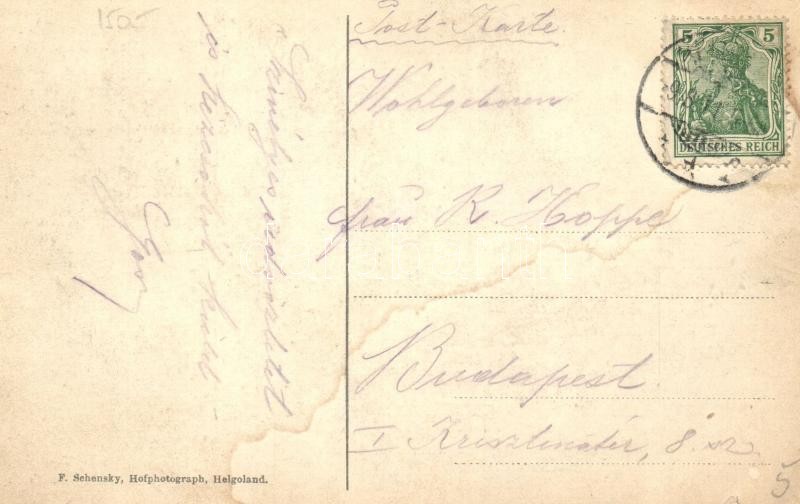 1505
Post-Karte.
5 5
DEUTSCHES REICH
Wohlgeboren
Frau R. Hoppe
Budapest.
I Krisztinatér, 8. sz.
és kézcsókot küld
F. Schensky, Hofphotograph, Helgoland.
5